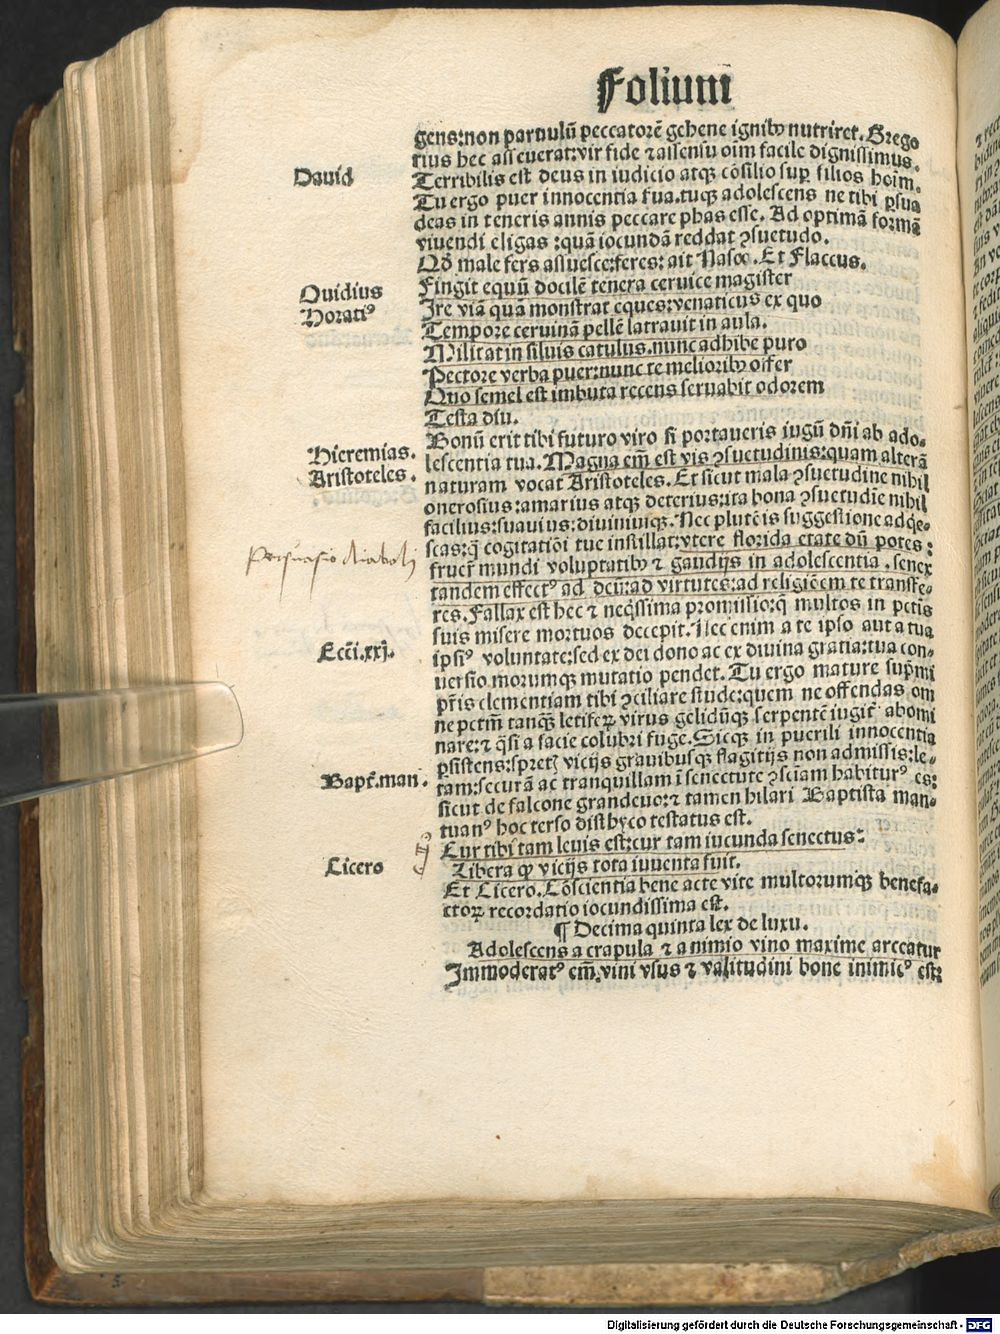 Folium
gens:non paruulũ peccatorẽ gehene ignibꝰ nutriret. Grego
rius hec asseuerat:vir fide ⁊ assensu oĩm facile dignissimus.
David
Terribilis est deus in iudicio atqꝫ cõsilio suꝑ filios hoĩm.
Tu ergo puer innocentia tua.tuqꝫ adolescens ne tibi ꝑsua
deas in teneris annis peccare phas esse. Ad optimã formã
viuendi eligas :quã iocundã reddat ꝯsuetudo.
Qđ male fers assuesce:feres: ait Naso. Et Flaccus.
Ouidius
Fingit equũ docilẽ tenera ceruice magister
Horatiꝰ
Ire viã quã monstrat eques:venaticus ex quo
Tempore ceruinã pellẽ latrauit in aula.
Militat in siluis catulus.nunc adhibe puro
Pectore verba puer:nunc te melioribꝰ offer
Quo semel est imbuta recens seruabit odorem
Testa diu.
Bonũ erit tibi futuro viro si portaueris iugũ dñi ab ado-
Hieremias.
lescentia tua. Magna em̃ est vis ꝯsuetudinis:quam alterã
Aristoteles.
naturam vocat Aristoteles. Et sicut mala ꝯsuetudine nihil
onerosius:amarius atqꝫ deterius:ita bona ꝯsuetudĩe nihil
facilius:suauius:diuiniusqꝫ. Nec plutẽis suggestione adqe-
scas:q̃ cogitatiõi tue instillat:vtere florida etate dũ potes:
Persuasio diaboli
fruer̃ mundi voluptatibꝰ ⁊ gaudijs in adolescentia .senex
tandem effectꝰ ad deũ:ad virtutes:ad religiõem te transfe-
res. Fallax est hec ⁊ neq̃ssima promissio:q̃ multos in pctĩs
suis misere mortuos decepit. Nec enim a te ipso aut a tua
Ecci.xxj.
ipsiꝰ voluntate:sed ex dei dono ac ex divina gratia:tua con-
uersio.morumqꝫ mutatio pendet. Tu ergo mature sup̃mi
pr̃is clementiam tibi ꝯciliare stude:quem ne offendas om
ne pctm̃ tanqꝫ̃ letiferꝝ virus gelidũqꝫ serpentẽ iugit̃ abomi
nare:⁊ q̃si a facie colubri fuge. Sicqꝫ in puerili innocentia
ꝑsistens:spretꝫ vicijs grauibusqꝫ flagitijs non admissis:le-
Bapt̃.man.
tam:securã ac tranquillam ĩ senectute ꝯsciam habiturꝰ es:
sicut de falcone grandeuo:⁊ tamen hilari Baptista man-
tuanꝰ hoc terso disthyco testatus est.
Cur tibi tam leuis est:cur tam iucunda senectus:
Libera ꝙ vicijs tota iuuenta fuit.
Cicero
Et Cicero. Cõscientia bene acte vite multorumqꝫ benefa-
ctorꝝ recordatio iocundissima est.
¶ Decima quinta lex de luxu.
Adolescens a crapula ⁊ a nimio vino maxime arceatur
Immoderatꝰ em̃.vini vsus ⁊ valitudini bone inimicꝰ est:
Digitalisierung gefördert durch die Deutsche Forschungsgemeinschaft - DFG